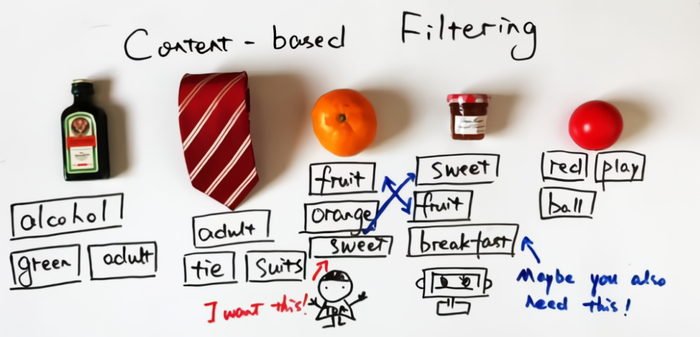 Content-based Filtering
alcohol
green adult
adult
tie suits
fruit
orange
sweet
I want this!
sweet
fruit
breakfast
Maybe you also
need this!
red play
ball